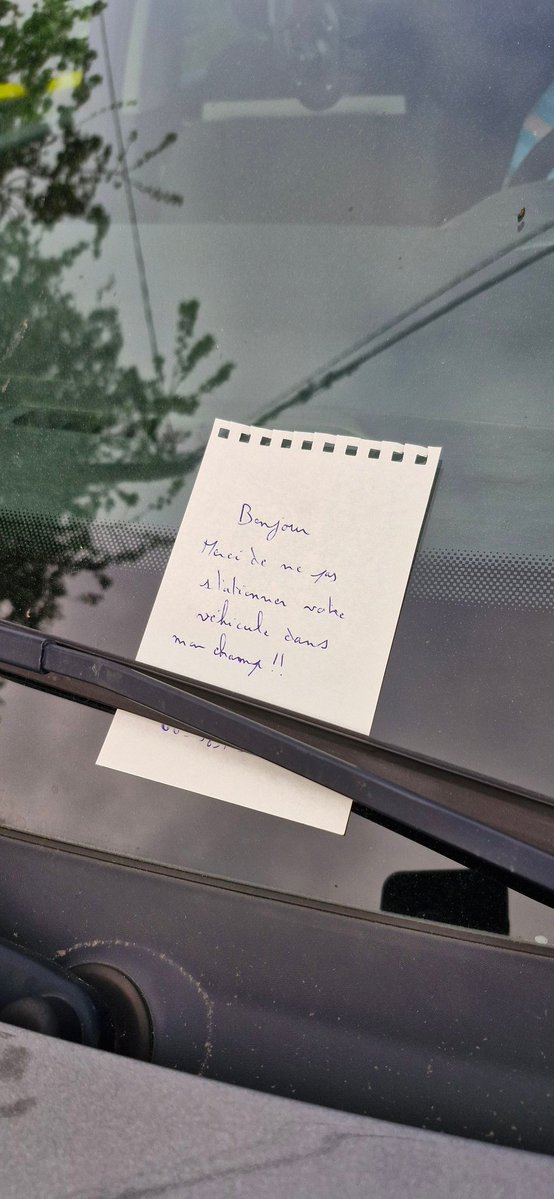 Bonjour
Merci de ne pas
stationner votre
véhicule dans
mon champ !!